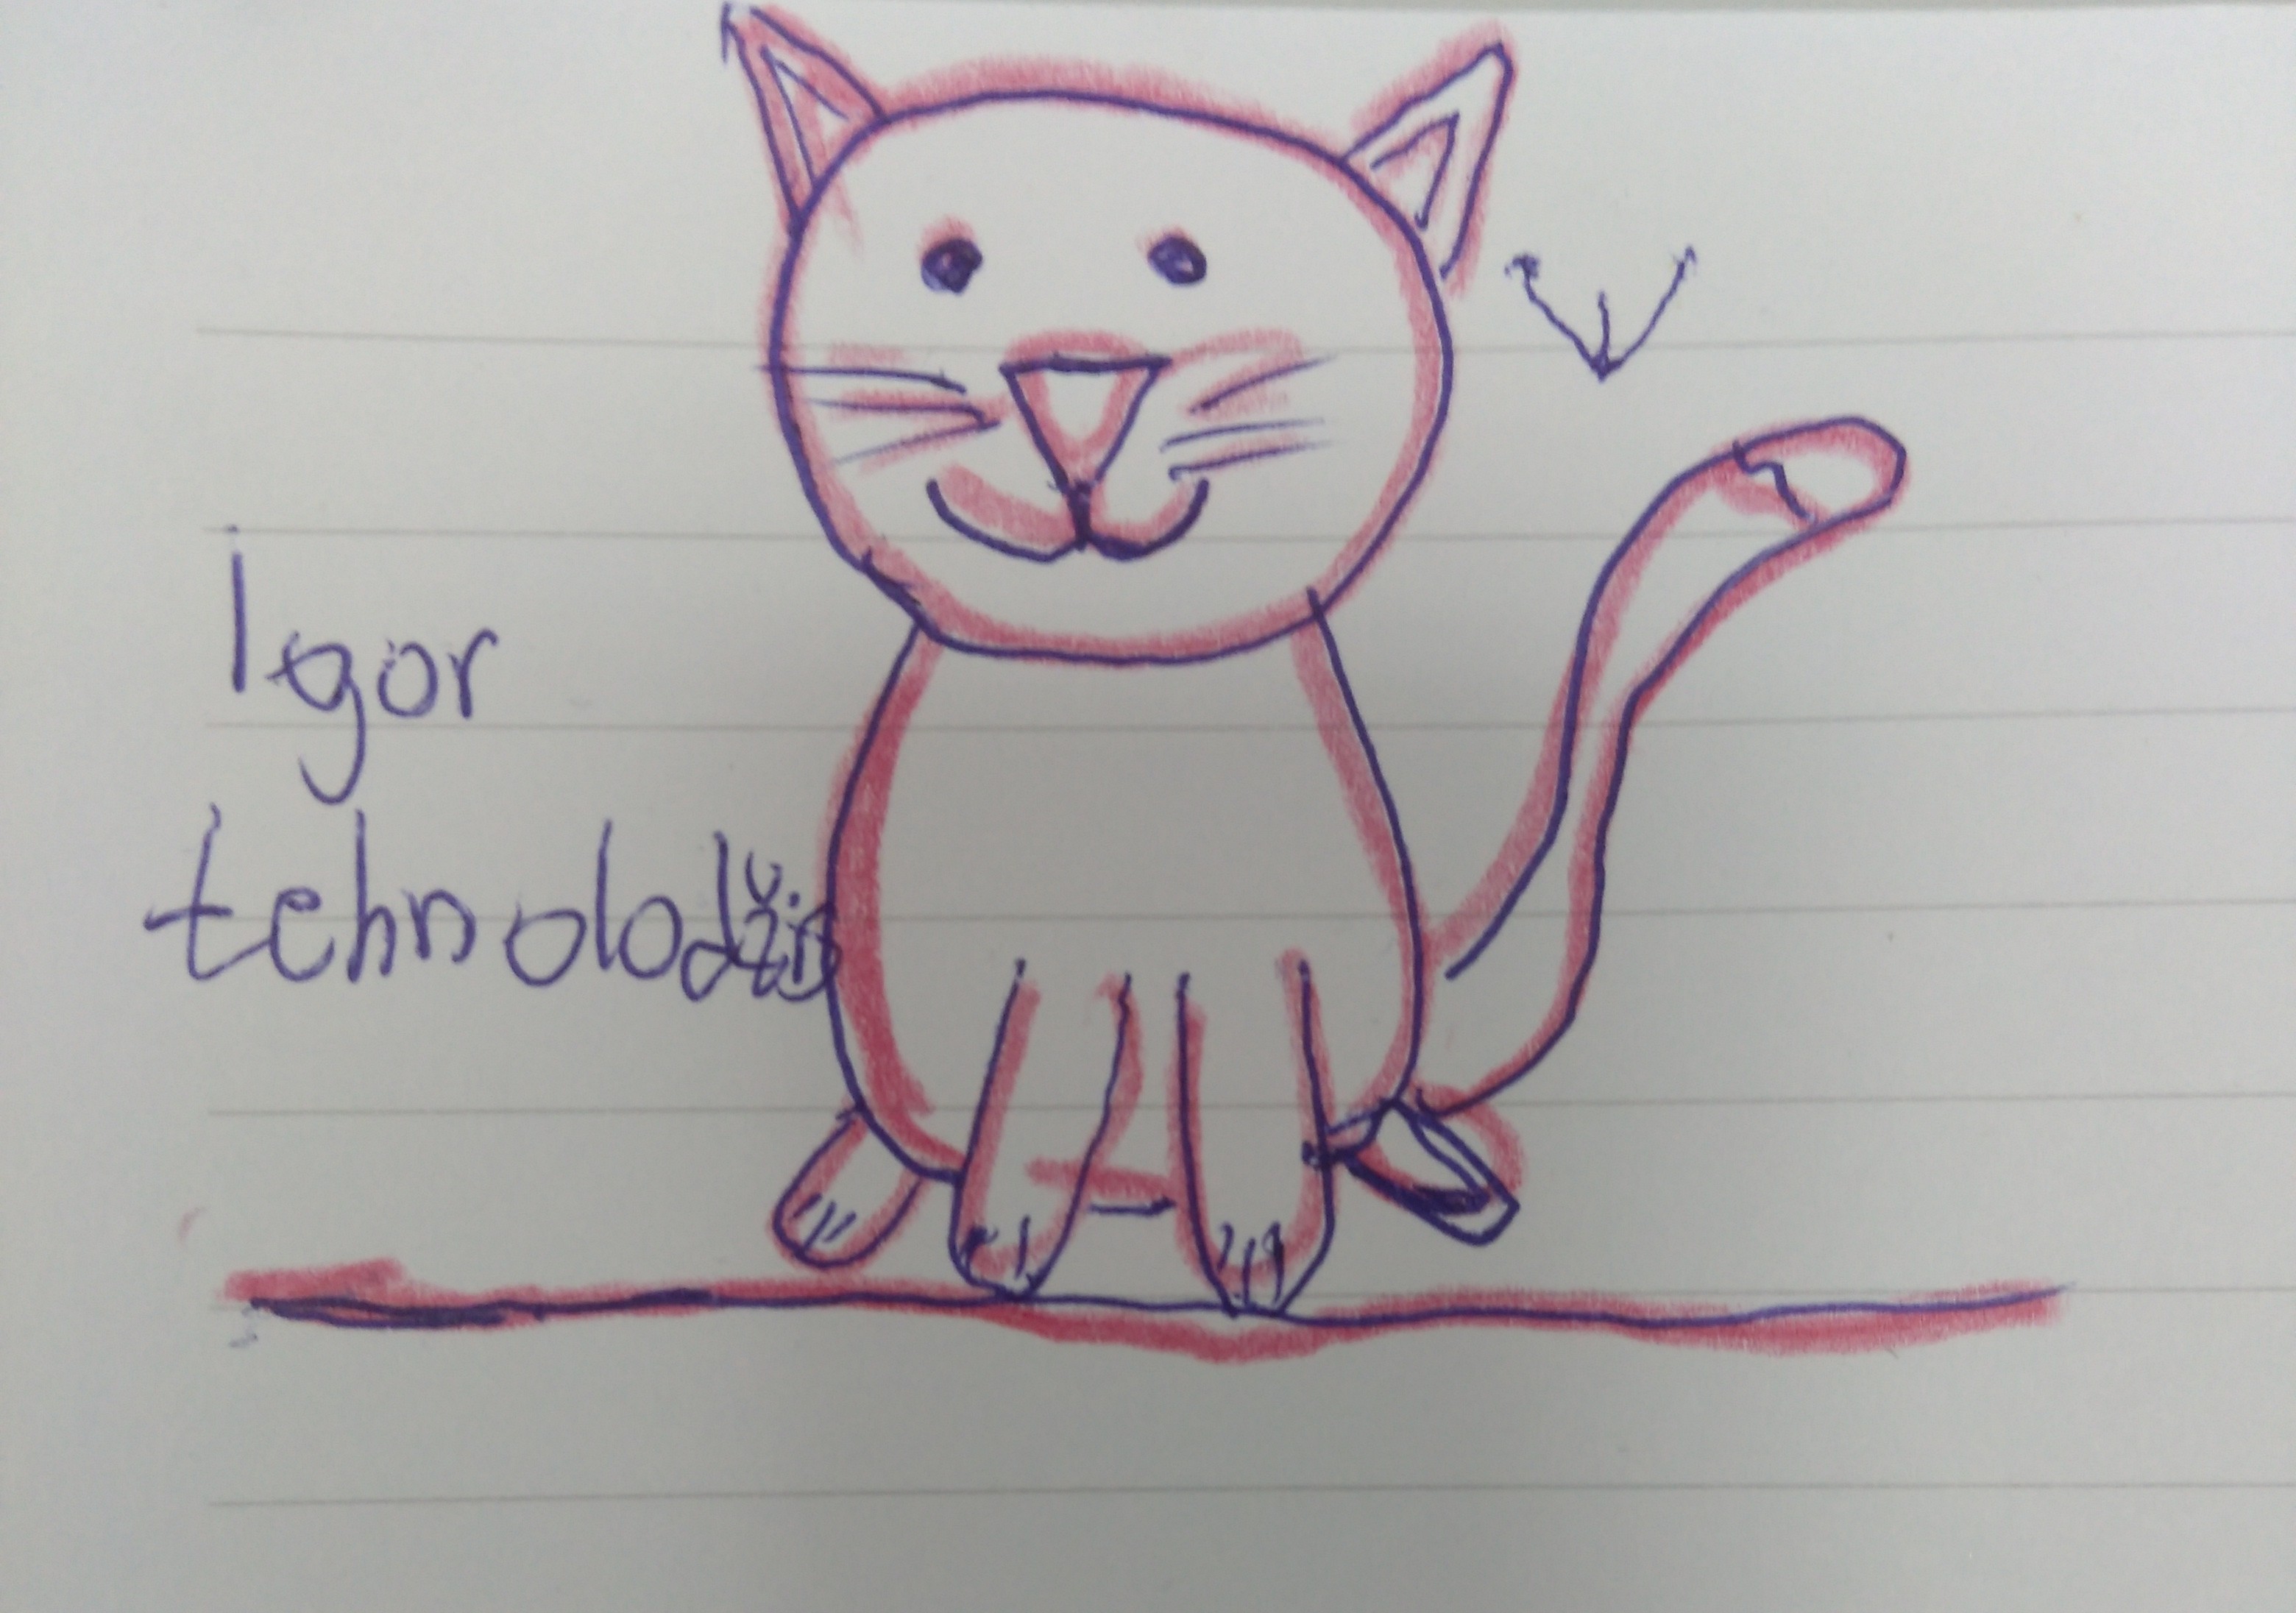 Igor
tehnolodžis